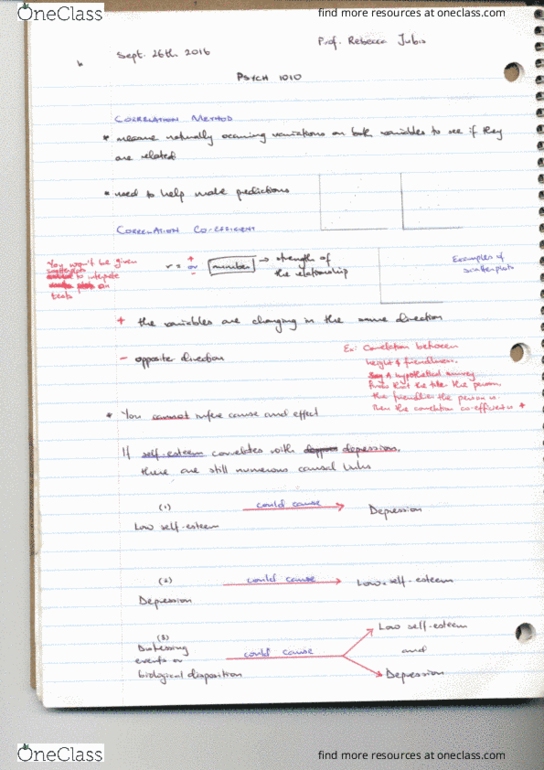 OneClass
find more resources at oneclass.com
Prof. Rebecca Jubis
Sept. 26th 2016
PSYCH 1010
CORRELATION METHOD
* measure naturally occuring variations on both variables to see if they
are related
* used to help make predictions
CORRELATION CO-EFFICIENT
You won't be given
scatterplots
to intepete
on
tests
r = + or - number → strength of
the relationship
Examples of
scatterplots
+ the variables are changing in the same direction
- opposite direction
Ex: Correlation between
height & friendliness.
Say a hypothetical survey
finds that the taller the person,
the friendlier the person is.
Then the correlation co-efficient is +
* You cannot infer cause and effect
If self-esteem correlates with depression,
there are still numerous causal links
(1)
Low self-esteem
could cause
Depression
(2)
Depression
could cause
Low self-esteem
(3)
Distressing
events or
biological disposition
could cause
Low self-esteem
and
Depression
OneClass
find more resources at oneclass.com